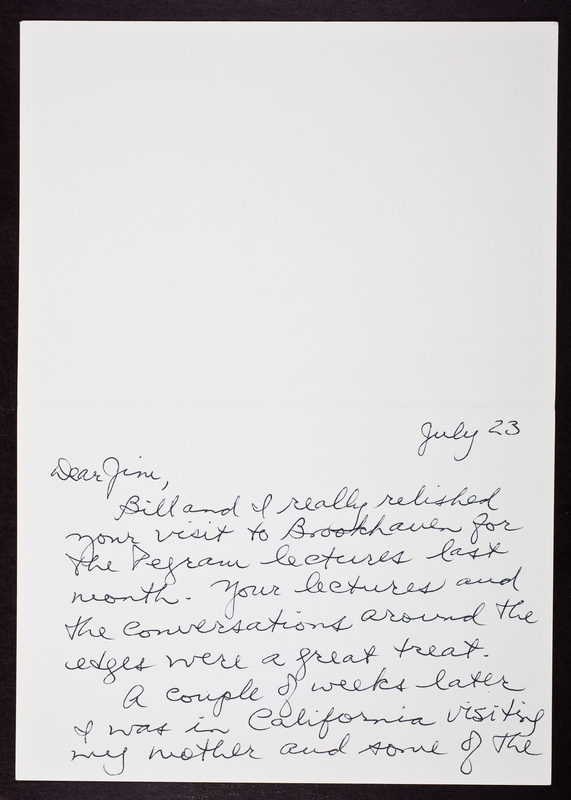 July 23
Dear Jim,
Bill and I really relished
your visit to Brookhaven for
the Pegram lectures last
month. Your lectures and
the conversations around the
edges were a great treat.
A couple of weeks later
I was in California visiting
my mother and some of the